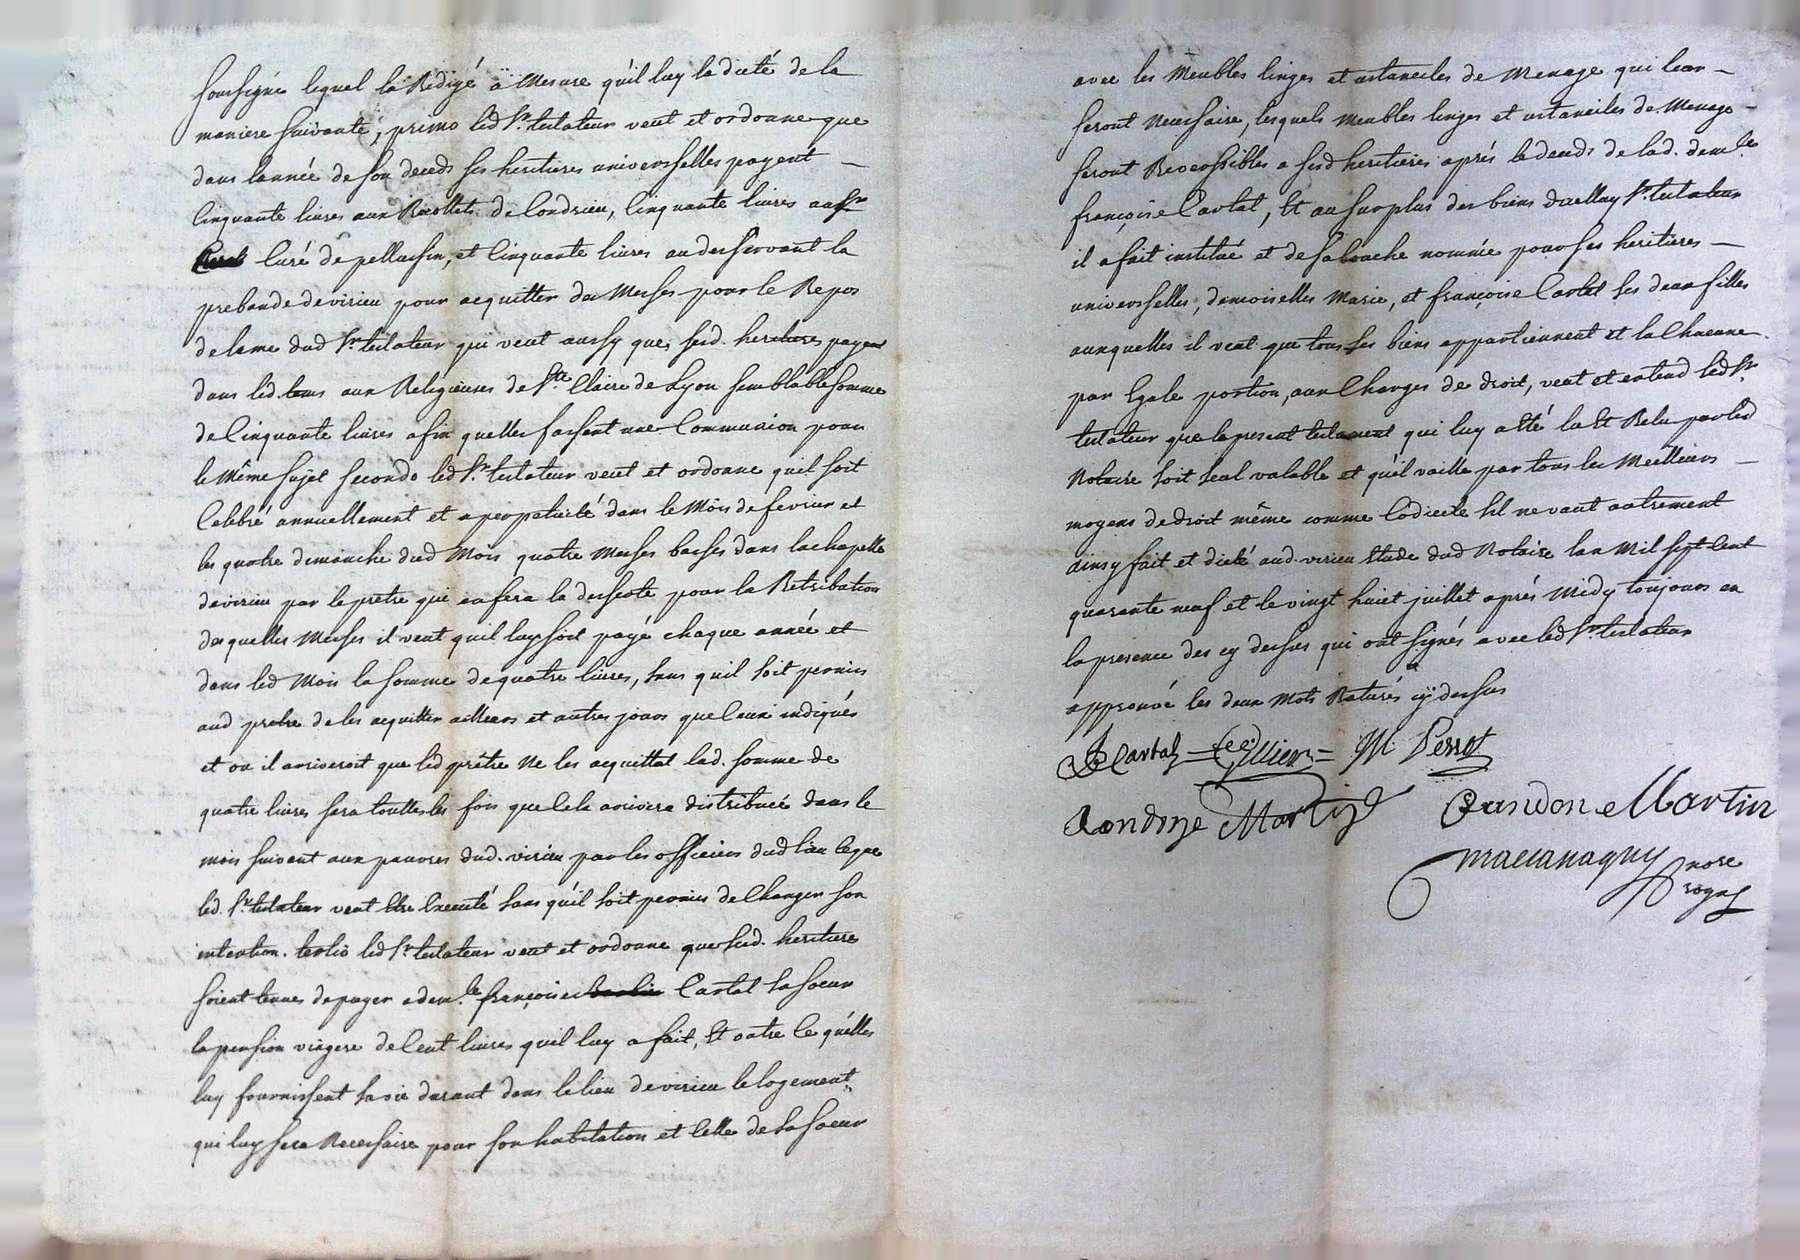 soussigné lequel la Redigé a Mesure qu'il luy la dicté de la
maniere suivante, primo led Sr. testateur veut et ordonne que
dans lannée de son deceds ses heritieres universselles payent
Cinquante livres aux Recollets de Condrieu, Cinquante livres au Sr
Curé de pellussin, et Cinquante livres au desservant la
prebande de virieu pour acquitter des Messes pour le Repos
de lame dud Sr. testateur qui veut aussy que sesd. heritieres payent
dans led. tems aux Religieuses de Ste. Claire de Lyon semblable somme
de Cinquante livres afin quelles fassent une Communion pour
le Même sujet secondo led Sr. testateur veut et ordonne quil soit
Celebré annuellement et a perpetuité dans le Mois de fevrier et
les quatre dimanche dud Mois quatre Messes basses dans la chapelle
de virieu par le prêtre qui en fera la desserte pour la Retribution
desquelles Messes il veut quil luy soit payé chaque année et
dans led Mois la somme de quatre livres, sans quil soit permis
aud prêtre de les acquitter ailleurs et autres jours que ceux indiqués
et ou il arriveroit que led prêtre Ne les acquittat lad. somme de
quatre livres sera touttes les fois que Cela arrivera distribuée dans le
mois suivent aux pauvres dud. virieu par les officiers dud lieu Ce que
led. Sr. testateur veut Etre Executé sans qu'il soit permis de Changer son
intention. tertio led Sr. testateur veut et ordonne que sesd. heritieres
soient tenues de payer a dem.lle françoise Cartal sa soeur
la pension viagere de Cent livres quil luy a fait, Et outre Ce qu'elles
luy fournissent sa vie durant dans le lieu de virieu le logement
qui luy sera Necessaire pour son habitation et Celle de sa soeur
avec les Meubles linges et ustanciles de Menage qui leur
seront Necessaire, lesquels Meubles linges et ustanciles de Menage
seront Reverssibles a sesd heritieres aprés le deceds de lad. dem.lle
françoise Cartal, Et au surplus des biens dicelluy Sr. testateur
il a fait institué et de sa bouche nommée pour ses heritieres
universselles, demoiselles Marie, et françoise Cartal ses deux filles
auxquelles il veut que tous ses biens appartiennent et la Chacune
par Egale portion, aux Charges de droit, veut et entend led Sr.
testateur que le present testament qui luy a Eté lu Et Relu par led
Notaire soit seul valable et qu'il vaille par tous les Meilleurs
moyens de droit même comme Codicile sil ne vaut autrement
ainsy fait et dicté aud. virieu Etude dud Notaire lan Mil sept Cent
quarante neuf et le vingt huict juillet aprés Midy toujours en
la presence des cy dessus qui ont signés avec led Sr. testateur
approuvé les deux Mots Raturés cy dessus
Cartal = = M Perrot
Martin Martin